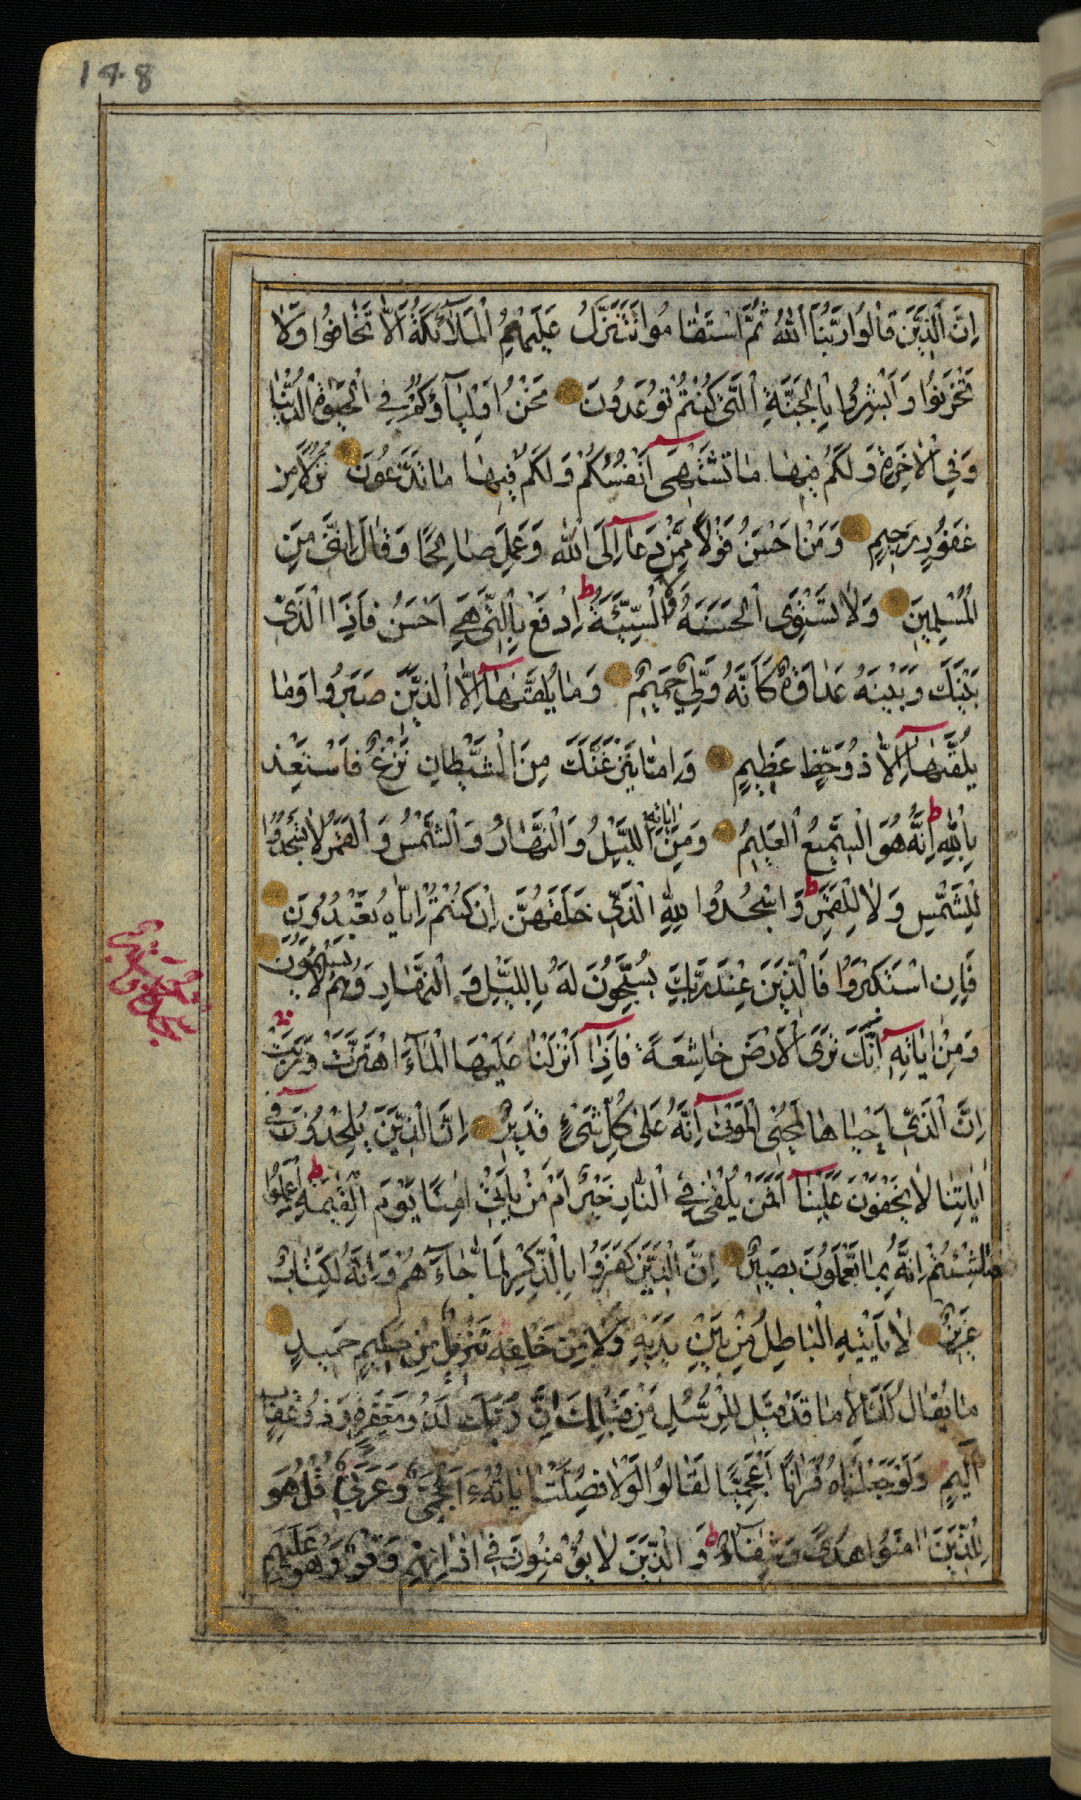 148
اِنَّ الَّذِينَ قَالُوا رَبُّنَا اللّٰهُ ثُمَّ اسْتَقَامُوا تَتَنَزَّلُ عَلَيْهِمُ الْمَلَآئِكَةُ اَلَّا تَخَافُوا وَلَا
تَحْزَنُوا وَاَبْشِرُوا بِالْجَنَّةِ الَّتِي كُنْتُمْ تُوعَدُونَ نَحْنُ اَوْلِيَآؤُكُمْ فِي الْحَيٰوةِ الدُّنْيَا
وَفِي الْاٰخِرَةِ وَلَكُمْ فِيهَا مَا تَشْتَهِي اَنْفُسُكُمْ وَلَكُمْ فِيهَا مَا تَدَّعُونَ نُزُلًا مِنْ
غَفُورٍ رَحِيمٍ وَمَنْ اَحْسَنُ قَوْلًا مِمَّنْ دَعَآ اِلَى اللّٰهِ وَعَمِلَ صَالِحًا وَقَالَ اِنَّنِي مِنَ
الْمُسْلِمِينَ وَلَا تَسْتَوِي الْحَسَنَةُ وَلَا السَّيِّئَةُ ط اِدْفَعْ بِالَّتِي هِيَ اَحْسَنُ فَاِذَا الَّذِي
بَيْنَكَ وَبَيْنَهُ عَدَاوَةٌ كَاَنَّهُ وَلِيٌّ حَمِيمٌ وَمَا يُلَقّٰىهَآ اِلَّا الَّذِينَ صَبَرُوا وَمَا
يُلَقّٰىهَآ اِلَّا ذُو حَظٍّ عَظِيمٍ وَاِمَّا يَنْزَغَنَّكَ مِنَ الشَّيْطَانِ نَزْغٌ فَاسْتَعِذْ
بِاللّٰهِ ط اِنَّهُ هُوَ السَّمِيعُ الْعَلِيمُ وَمِنْ اٰيَاتِهِ اللَّيْلُ وَالنَّهَارُ وَالشَّمْسُ وَالْقَمَرُ لَا تَسْجُدُوا
لِلشَّمْسِ وَلَا لِلْقَمَرِ ط وَاسْجُدُوا لِلّٰهِ الَّذِي خَلَقَهُنَّ اِنْ كُنْتُمْ اِيَّاهُ تَعْبُدُونَ
فَاِنِ اسْتَكْبَرُوا فَالَّذِينَ عِنْدَ رَبِّكَ يُسَبِّحُونَ لَهُ بِاللَّيْلِ وَالنَّهَارِ وَهُمْ لَا يَسْئَمُونَ
وَمِنْ اٰيَاتِهِ اَنَّكَ تَرَى الْاَرْضَ خَاشِعَةً فَاِذَآ اَنْزَلْنَا عَلَيْهَا الْمَآءَ اهْتَزَّتْ وَرَبَتْ
اِنَّ الَّذِي اَحْيَاهَا لَمُحْيِي الْمَوْتٰى اِنَّهُ عَلٰى كُلِّ شَيْءٍ قَدِيرٌ اِنَّ الَّذِينَ يُلْحِدُونَ فِي
اٰيَاتِنَا لَا يَخْفَوْنَ عَلَيْنَآ اَفَمَنْ يُلْقٰى فِي النَّارِ خَيْرٌ اَمْ مَنْ يَأْتِي اٰمِنًا يَوْمَ الْقِيٰمَةِ ط اِعْمَلُوا
مَا شِئْتُمْ اِنَّهُ بِمَا تَعْمَلُونَ بَصِيرٌ اِنَّ الَّذِينَ كَفَرُوا بِالذِّكْرِ لَمَّا جَآءَهُمْ وَاِنَّهُ لَكِتَابٌ
عَزِيزٌ لَا يَأْتِيهِ الْبَاطِلُ مِنْ بَيْنِ يَدَيْهِ وَلَا مِنْ خَلْفِهِ تَنْزِيلٌ مِنْ حَكِيمٍ حَمِيدٍ
مَا يُقَالُ لَكَ اِلَّا مَا قَدْ قِيلَ لِلرُّسُلِ مِنْ قَبْلِكَ اِنَّ رَبَّكَ لَذُو مَغْفِرَةٍ وَذُو عِقَابٍ
اَلِيمٍ وَلَوْ جَعَلْنَاهُ قُرْاٰنًا اَعْجَمِيًّا لَقَالُوا لَوْلَا فُصِّلَتْ اٰيَاتُهُ ءَاَعْجَمِيٌّ وَعَرَبِيٌّ قُلْ هُوَ
لِلَّذِينَ اٰمَنُوا هُدًى وَشِفَآءٌ ط وَالَّذِينَ لَا يُؤْمِنُونَ فِي اٰذَانِهِمْ وَقْرٌ وَهُوَ عَلَيْهِمْ